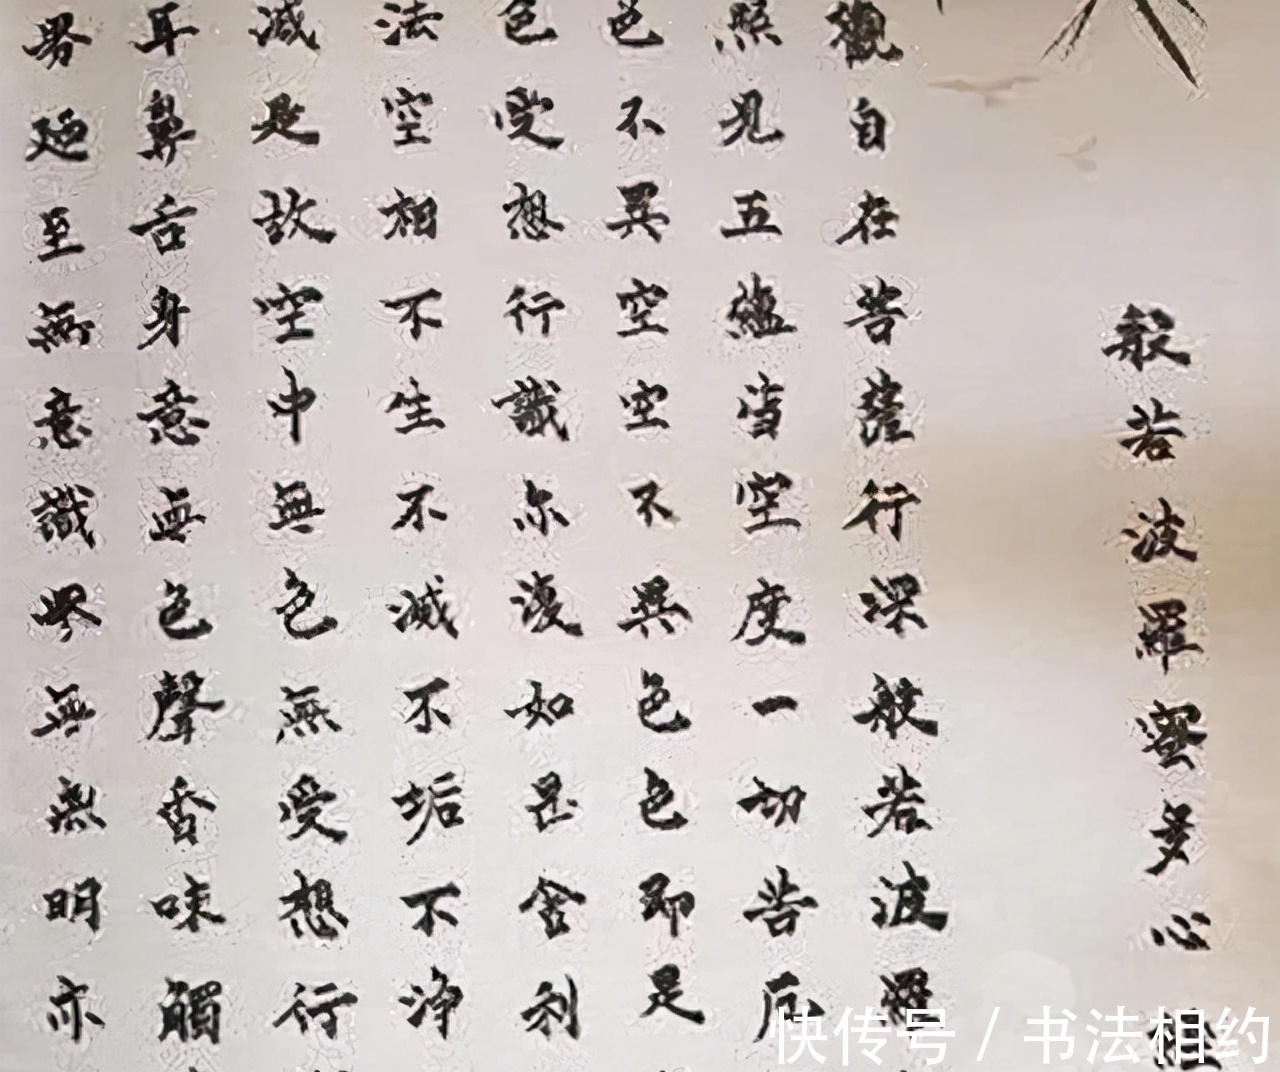 般若波羅蜜多心經
觀自在菩薩行深般若波羅
照見五蘊皆空度一切苦厄
色不異空空不異色色即是
色受想行識亦復如是舍利
法空相不生不滅不垢不淨
滅是故空中無色無受想行
耳鼻舌身意無色聲香味觸
界乃至無意識界無無明亦
快传号/书法相约